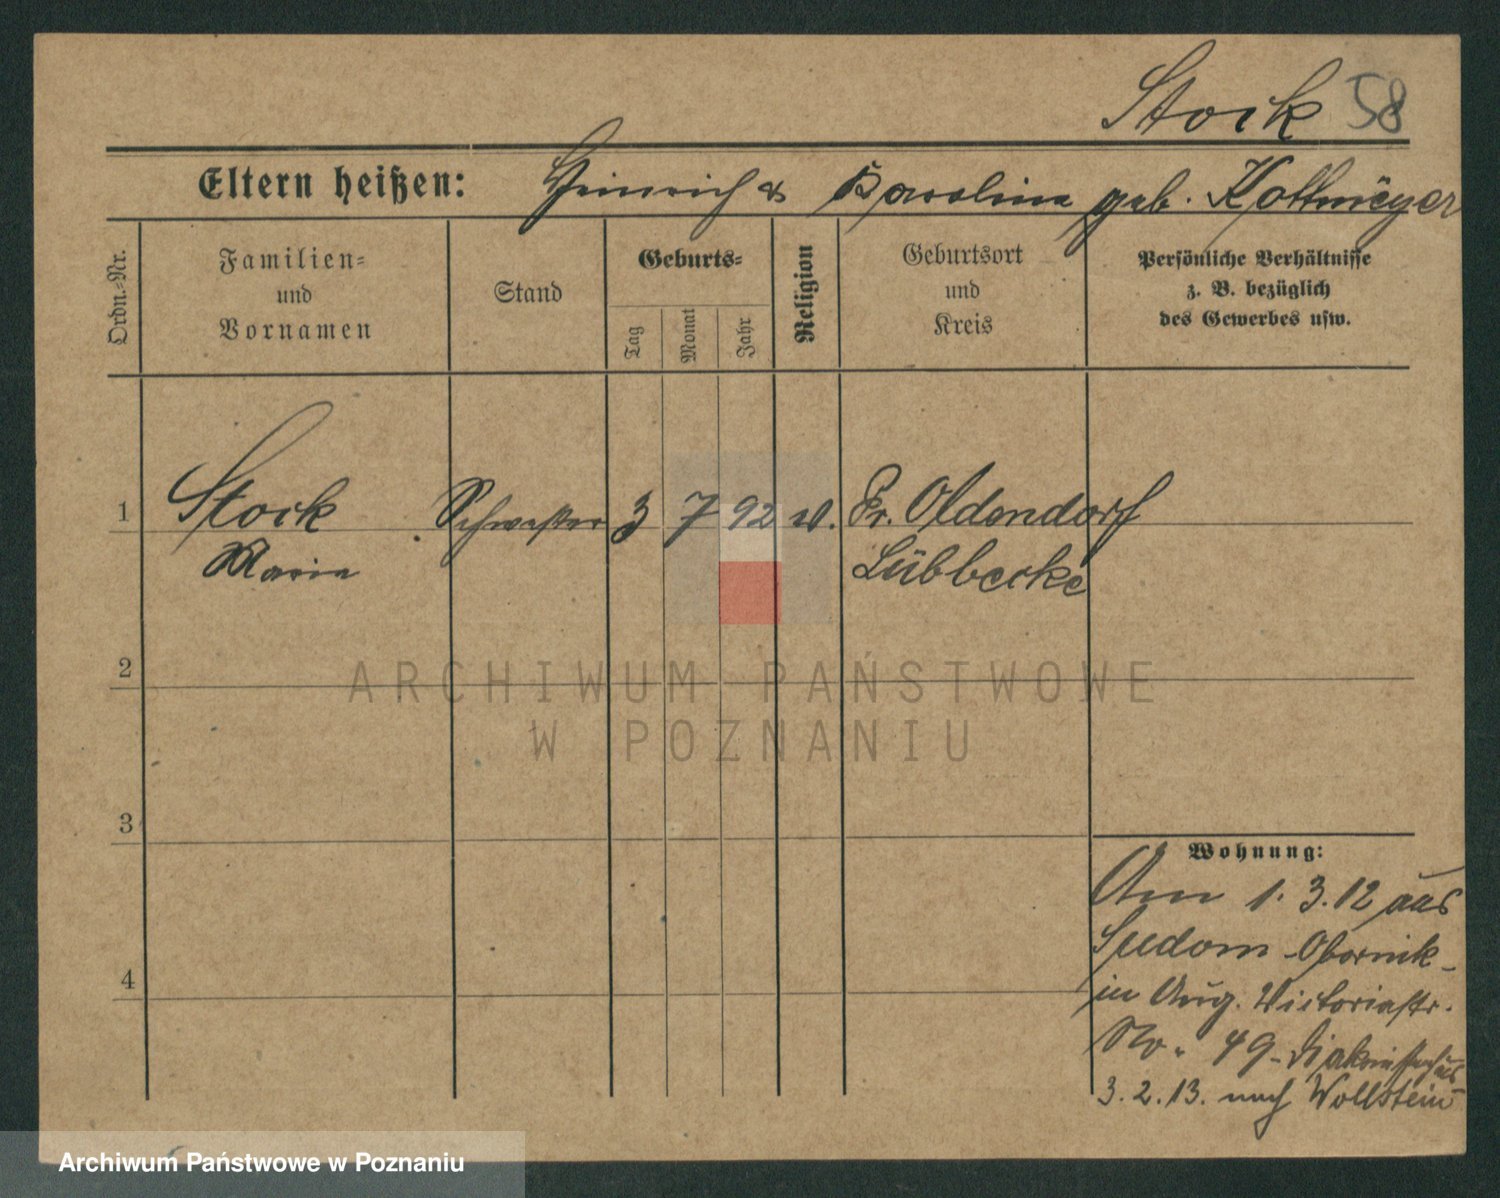 Stock 58
Eltern heißen: Heinrich & Karoline geb. Kollmeyer
Ordn.-Nr.
Familien-
und
Vornamen
Stand
Geburts-
Tag
Monat
Jahr
Religion
Geburtsort
und
Kreis
Persönliche Verhältnisse
z. B. bezüglich
des Gewerbes usw.
1 Stock Schwester 3 7 92 ev. Pr. Oldendorf
Marie Lübbecke
2
3
4
Wohnung:
Am 1. 3. 12 aus
Obornik
in Aug. Victoriastr.
No. 49 - Diakonissenhaus
3. 2. 13. nach Wollstein
ARCHIWUM PAŃSTWOWE
W POZNANIU
Archiwum Państwowe w Poznaniu